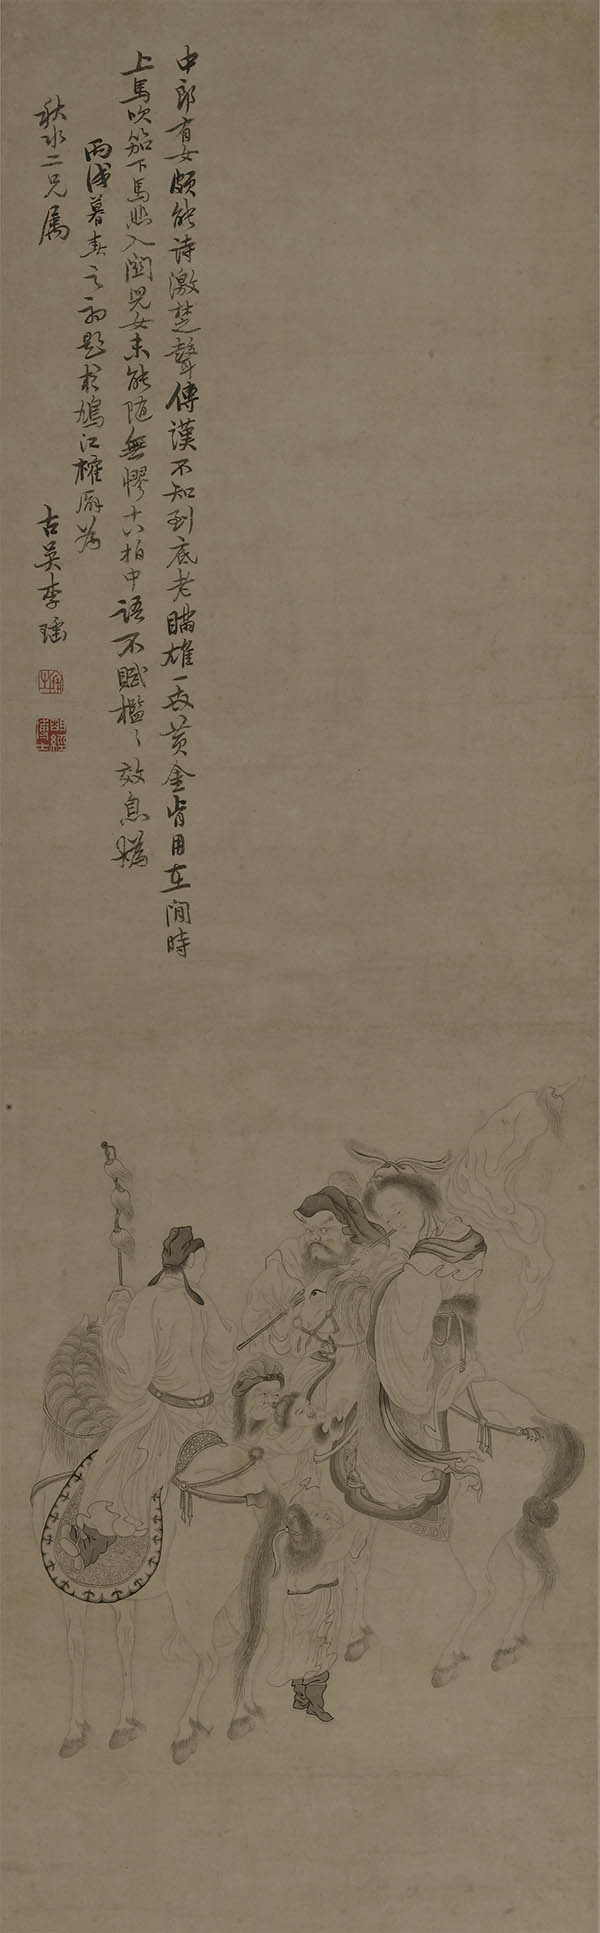 中郎有女頗能詩激楚聲傳漢不知到底老瞞雄一世黃金肯用在閒時
上馬吹笳下馬悲入關兒女未能隨無憀十八拍中語不賦檻〻效息媯
丙戌暮春之初題於鳩江榷廨為
秋冰二兄屬
古吳李瑤